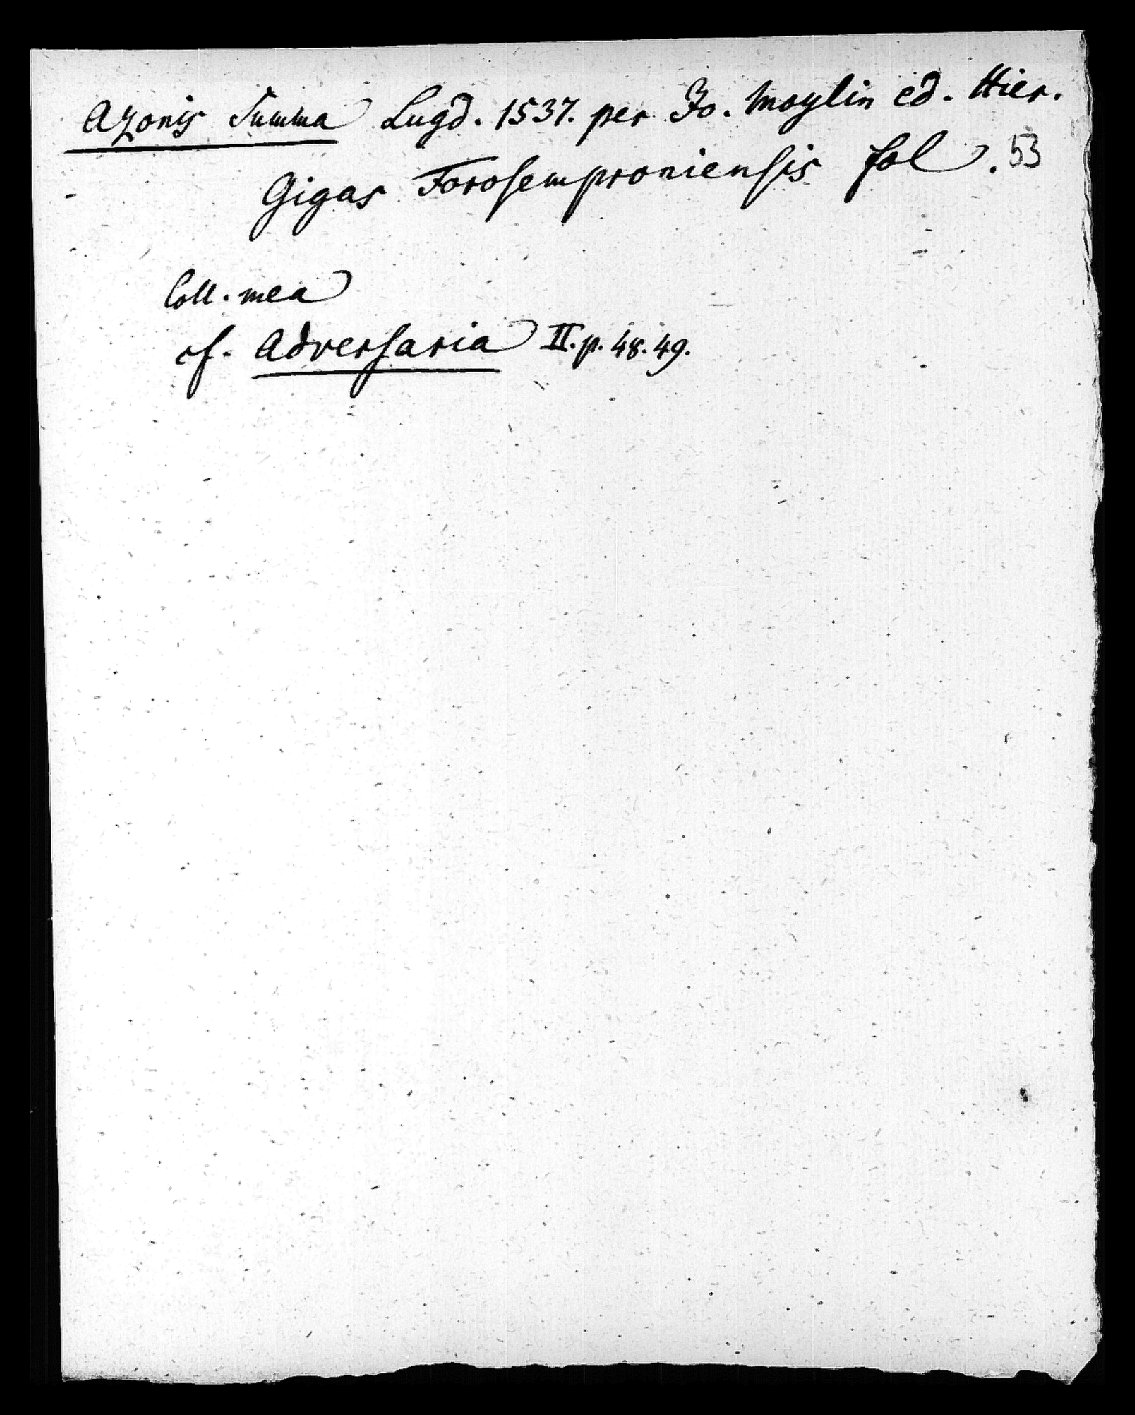 Azonis Summa Lugd. 1537. per Jo. Moylin ed. Hier.
Gigas Forosemproniensis fol.
53
Coll. mea
cf. Adversaria II. p. 48. 49.